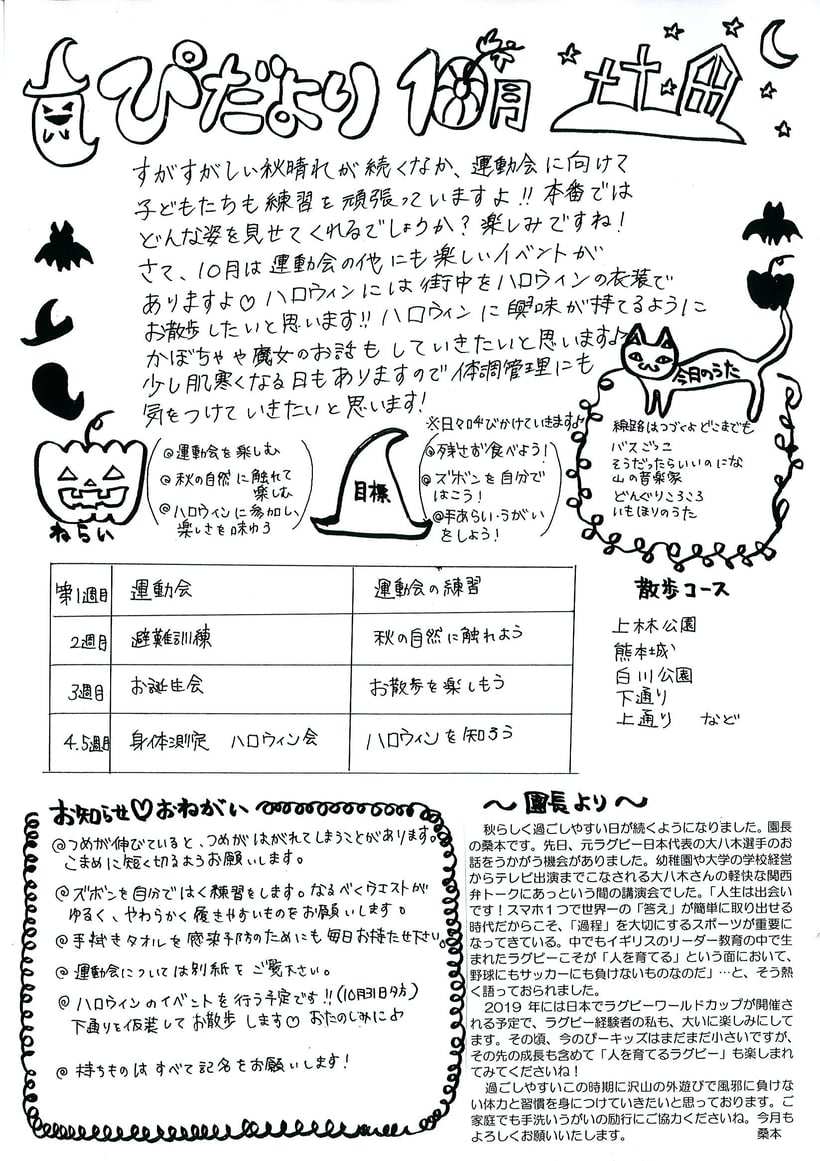 ぴだより 10月
すがすがしい秋晴れが続くなか、運動会に向けて
子どもたちも練習を頑張っていますよ!!本番では
どんな姿を見せてくれるでしょうか?楽しみですね!
さて、10月は運動会の他にも楽しいイベントが
ありますよ♡ ハロウィンには街中をハロウィンの衣装で
お散歩したいと思います!! ハロウィンに興味が持てるように
かぼちゃや魔女のお話もしていきたいと思います♪
少し肌寒くなる日もありますので体調管理にも
気をつけていきたいと思います!
ねらい
@運動会を楽しむ
@秋の自然に触れて
楽しむ
@ハロウィンに参加し、
楽しさを味わう
目標
※日々呼びかけていきます♪
@残さず食べよう!
@ズボンを自分で
はこう!
@手あらい・うがい
をしよう!
今月のうた
線路はつづくよどこまでも
バスごっこ
そうだったらいいのにな
山の音楽家
どんぐりころころ
いもほりのうた
第1週目 運動会 運動会の練習
2週目 避難訓練 秋の自然に触れよう
3週目 お誕生会 お散歩を楽しもう
4.5週目 身体測定 ハロウィン会 ハロウィンを知ろう
散歩コース
上林公園
熊本城
白川公園
下通り
上通り など
お知らせ♡おねがい
@つめが伸びていると、つめがはがれてしまうことがあります。
こまめに短く切るようお願いします。
@ズボンを自分ではく練習をします。なるべくウエストが
ゆるく、やわらかく履きやすいものをお願いします。
@手拭きタオルを感染予防のためにも毎日お持たせ下さい。
@運動会については別紙をご覧下さい。
@ハロウィンのイベントを行う予定です!!(10月31日夕方)
下通りを仮装してお散歩します♡ おたのしみに♪
@持ちものはすべて記名をお願いします!
～園長より～
秋らしく過ごしやすい日が続くようになりました。園長
の桑本です。先日、元ラグビー日本代表の大八木選手のお
話をうかがう機会がありました。幼稚園や大学の学校経営
からテレビ出演までこなされる大八木さんの軽快な関西
弁トークにあっという間の講演会でした。「人生は出会い
です!スマホ1つで世界一の「答え」が簡単に取り出せる
時代だからこそ、「過程」を大切にするスポーツが重要に
なってきている。中でもイギリスのリーダー教育の中で生
まれたラグビーこそが「人を育てる」という面において、
野球にもサッカーにも負けないものなのだ」…と、そう熱
く語っておられました。
2019 年には日本でラグビーワールドカップが開催さ
れる予定で、ラグビー経験者の私も、大いに楽しみにして
ます。その頃、今のぴーキッズはまだまだ小さいですが、
その先の成長も含めて「人を育てるラグビー」も楽しまれ
てみてくださいね!
過ごしやすいこの時期に沢山の外遊びで風邪に負けな
い体力と習慣を身につけていきたいと思っております。ご
家庭でも手洗いうがいの励行にご協力くださいね。今月も
よろしくお願いいたします。 桑本